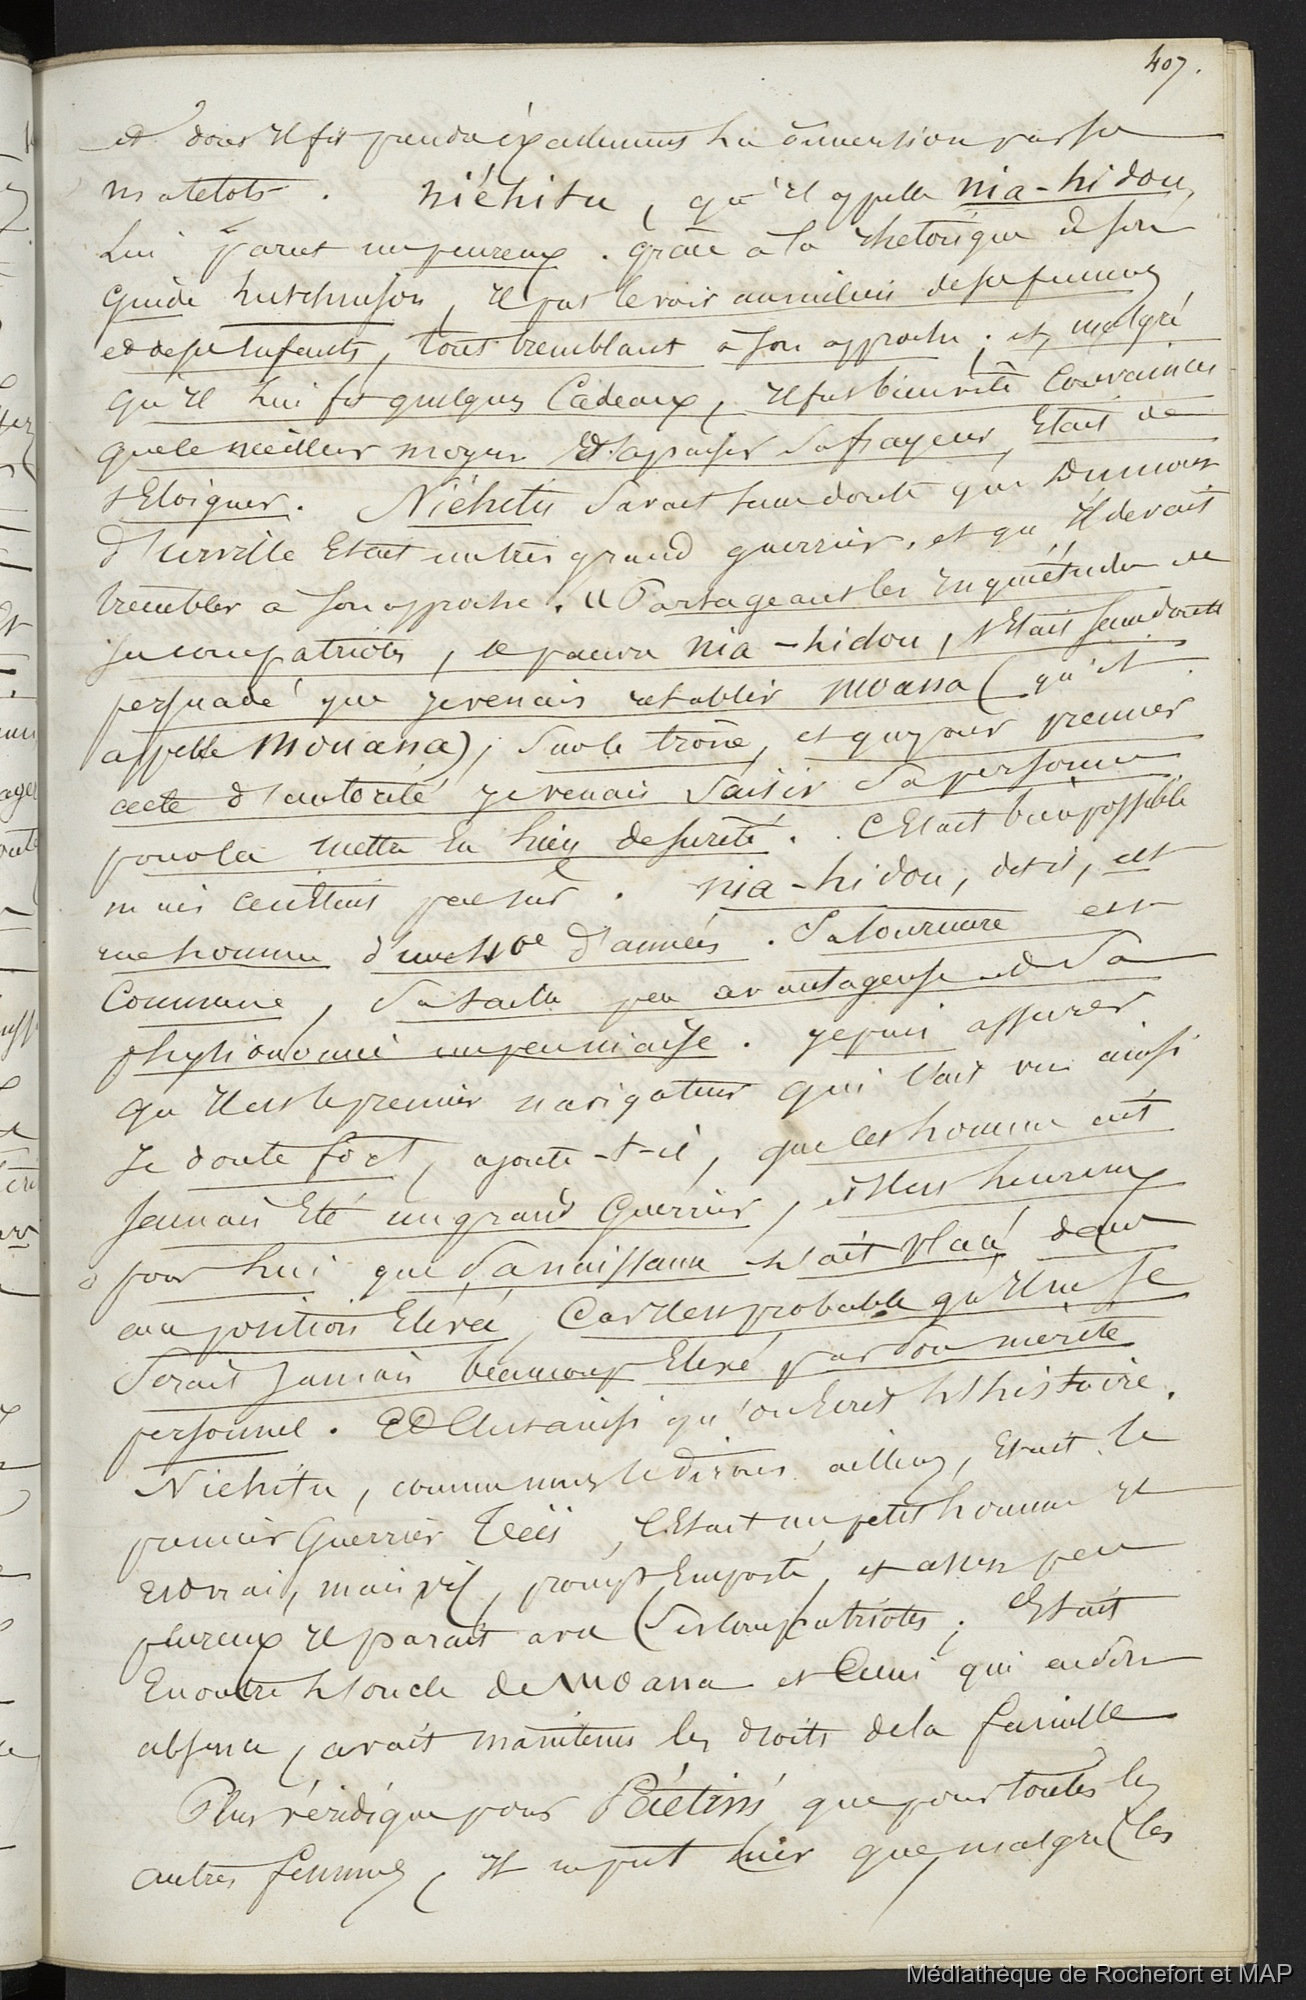 407.
et dont il fit pendre la conversion par ses
matelots. Niéhitu, qu'il appelle Nia-hidou,
lui parut un peureux. grâce à la rhetorique de son
guide hutchinson, il put le voir au milieu de ses femmes
et de ses Enfants, tout tremblant à son approche; et, malgré
qu'il lui fit quelques Cadeaux, il fut bien vite Convaincu
que le meilleur moyen d'apaiser sa frayeur, Etait de
s'Eloigner. Niéhitu savait sans doute que Dumont
d'urville Etait un très grand guerrier, et qu'il devait
trembler à son approche. « Partageant les inquiétudes de
ses compatriotes, le pauvre Nia-hidou, s'Etait sans doute
persuadé que je venais rétablir Moana (qu'il
appelle Mouana), sur le trône, et que pour premier
acte d'autorité je venais saisir sa personne
pour la mettre en lieu de sureté. C'Etait bien possible
mais ce n'était pas sûr. Nia-hidou, dit-il, est
un homme d'une 40e d'années. Sa tournure est
Commune, sa taille peu avantageuse et sa
physionomie un peu niaise. je puis assurer
qu'il est le premier navigateur qui l'ait vu ainsi
Je doute fort, ajoute-t-il, que cet homme ait
jamais Eté un grand Guerrier, et il est heureux
pour lui que sa naissance l'ait placé dans
une position Elevée, Car il est probable qu'il ne se
serait jamais beaucoup Elevé par son mérite
personnel. Et C'est ainsi qu'on Ecrit l'histoire.
Niéhitu, comme nous le dirons ailleurs, Etait le
premier Guerrier Teïi, C'Etait un petit homme il
est vrai, mais vif, prompt Emporté, et assez peu
peureux il parait avec ses Compatriotes; C'Etait
En outre l'oncle de Moana et Celui qui en son
absence, avait maintenu les droits de la famille
Plus véridique pour Paétini que pour toutes les
autres femmes, il ne put nier que, malgré les
Médiathèque de Rochefort et MAP